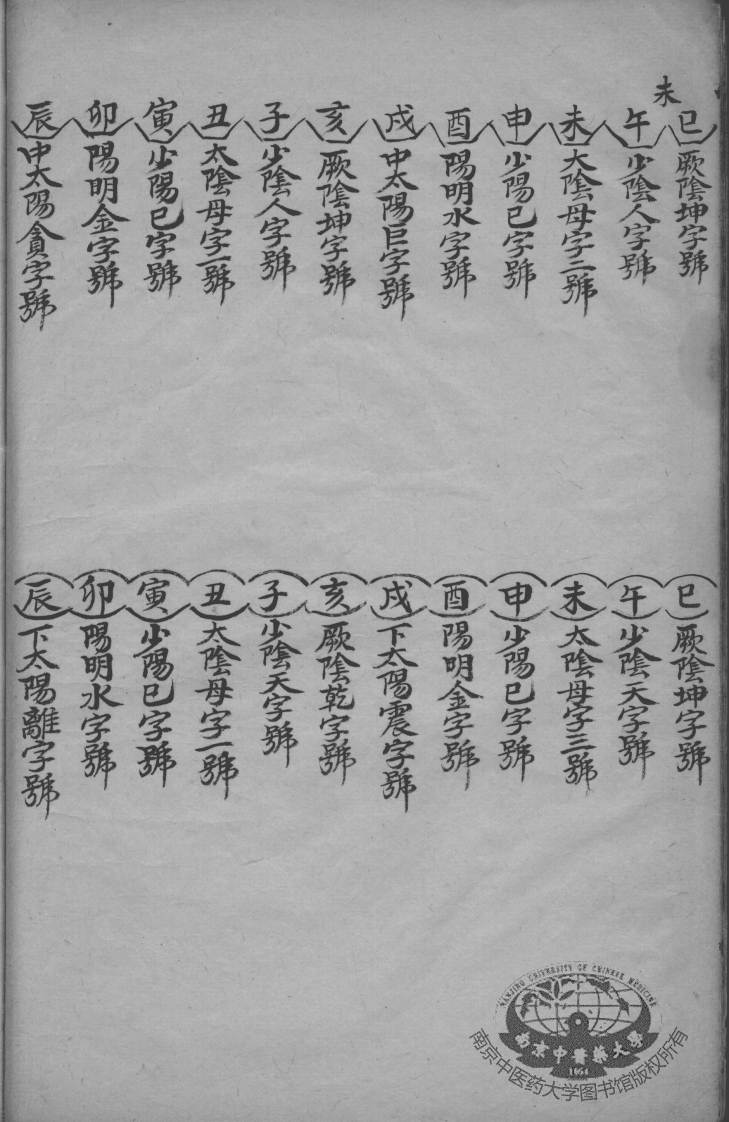 未
巳 厥陰坤字號
午 少陰人字號
未 太陰母字二號
申 少陽巳字號
酉 陽明水字號
戌 中太陽巨字號
亥 厥陰坤字號
子 少陰人字號
丑 太陰母字一號
寅 少陽巳字號
卯 陽明金字號
辰 中太陽貪字號
巳 厥陰坤字號
午 少陰天字號
未 太陰母字三號
申 少陽巳字號
酉 陽明金字號
戌 下太陽震字號
亥 厥陰乾字號
子 少陰天字號
丑 太陰母字一號
寅 少陽巳字號
卯 陽明水字號
辰 下太陽離字號
NANJING UNIVERSITY OF CHINESE MEDICINE
南京中醫藥大學
1954
南京中医药大学图书馆版权所有